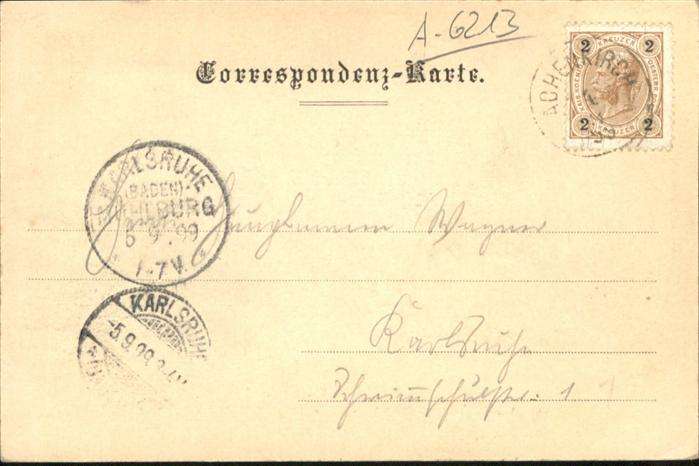 A-6213
Correspondenz-Karte.
2 KREUZER 2
2 KREUZER 2
ACHENKIRCH
99
KARLSRUHE
(BADEN)
MÜHLBURG
6 9 . 99
1-7V.
Wagner
KARLSRUHE
-5.9.99.
Karlsruhe
Schwimmschulstr. 1